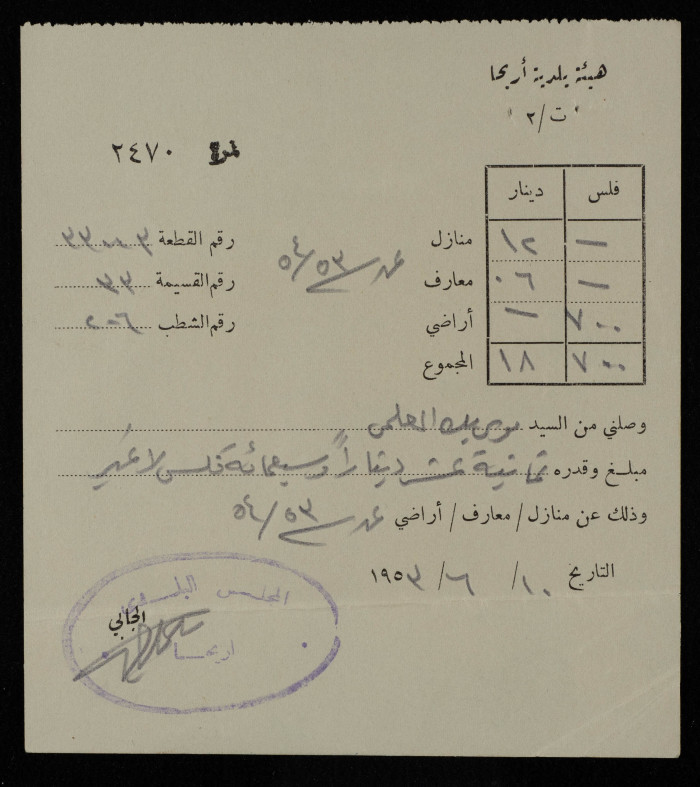 هيئة بلدية أريحا
ت/٢
نمرة ٢٤٧٠
فلس دينار
منازل ١٢ —
معارف ٠٦ —
أراضي — ٧٠٠
المجموع ١٨ ٧٠٠
عن سنة ٥٤/٥٣
رقم القطعة ٣٣٠٠٣
رقم القسيمة ٣٣
رقم الشطب ٢٠٦
وصلني من السيد موسى بك العلمي
مبلغ وقدره ثمانية عشر ديناراً وسبعمائة فلس لا غير
وذلك عن منازل / معارف / أراضي عن سنة ٥٤/٥٣
التاريخ ١٠/ ٦/ ١٩٥٣
الجابي
المجلس البلدي
اريحا